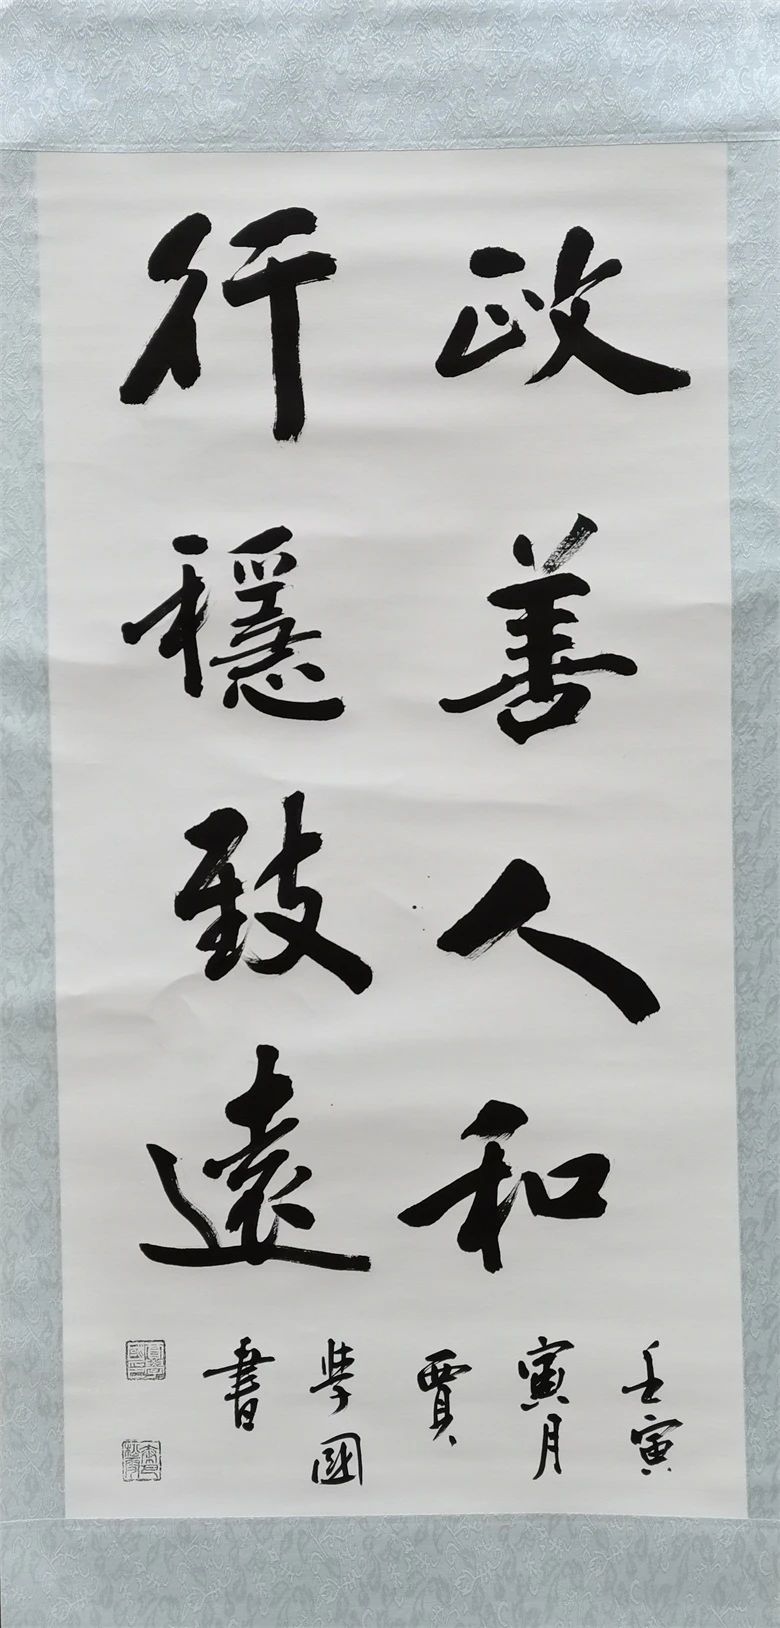 政善人和
行穩致遠
壬寅
寅月
賈
學國
書